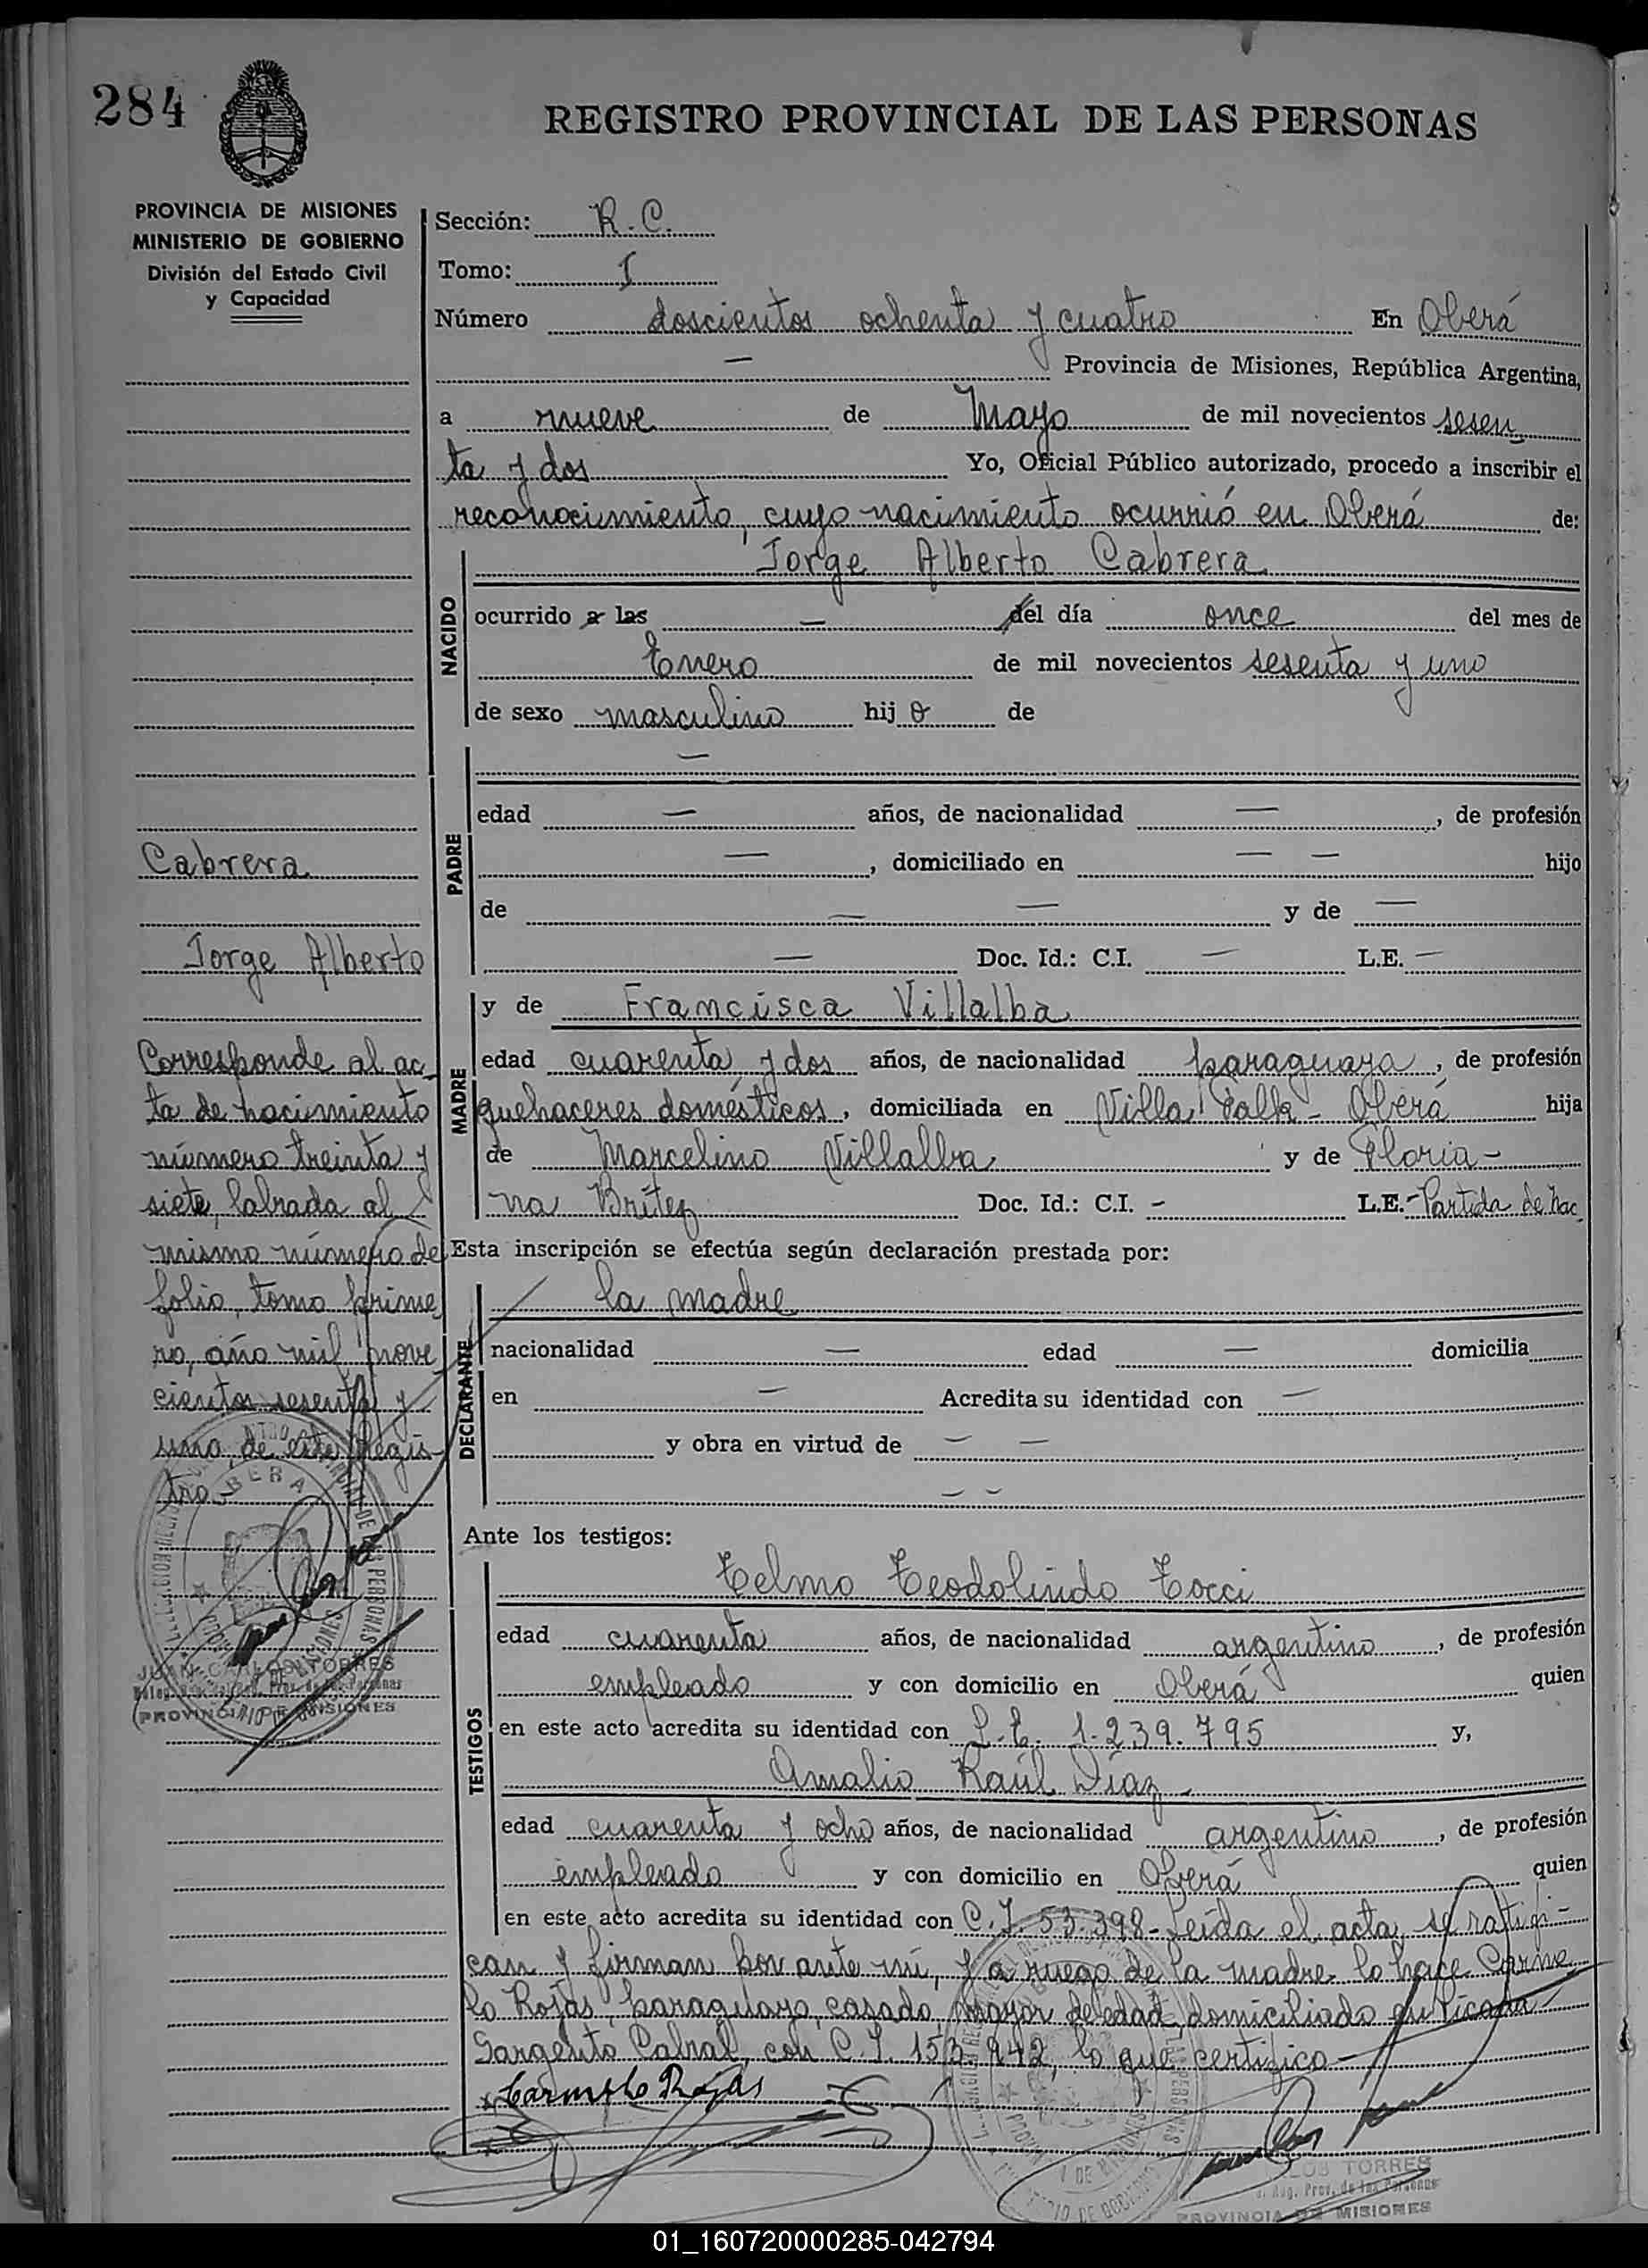 284
REGISTRO PROVINCIAL DE LAS PERSONAS
PROVINCIA DE MISIONES
MINISTERIO DE GOBIERNO
División del Estado Civil
y Capacidad
Sección: R. C.
Tomo: I
Número doscientos ochenta y cuatro En Oberá
— Provincia de Misiones, República Argentina,
a nueve de Mayo de mil novecientos sesen
ta y dos Yo, Oficial Público autorizado, procedo a inscribir el
reconocimiento, cuyo nacimiento ocurrió en Oberá de:
NACIDO
Jorge Alberto Cabrera
ocurrido a las — del día once del mes de
Enero de mil novecientos sesenta y uno
de sexo masculino hijo de
PADRE
—
edad — años, de nacionalidad —, de profesión
—, domiciliado en — — hijo
de — — y de —
— Doc. Id.: C.I. — L.E. —
MADRE
y de Francisca Villalba
edad cuarenta y dos años, de nacionalidad paraguaya, de profesión
quehaceres domésticos, domiciliada en Villa - Oberá hija
de Marcelino Villalba y de Floria-
na Britez Doc. Id.: C.I. - L.E.- Partida de nac.
Esta inscripción se efectúa según declaración prestada por:
DECLARANTE
la madre
nacionalidad — edad — domicilia
en — Acredita su identidad con —
y obra en virtud de — —
— —
Ante los testigos:
TESTIGOS
Telmo Teodolindo Tocci
edad cuarenta años, de nacionalidad argentino, de profesión
empleado y con domicilio en Oberá quien
en este acto acredita su identidad con L.E. 1.239.795 y,
Amalio Raúl Díaz
edad cuarenta y ocho años, de nacionalidad argentino, de profesión
empleado y con domicilio en Oberá quien
en este acto acredita su identidad con C.I. 53.398- Leída el acta, se ratifi-
can y firman por ante mí, y a ruego de la madre lo hace Carme
lo Rojas, paraguayo, casado, mayor de edad, domiciliado en Picada
Sargento Cabral, con C.I. 153.942, lo que certifico
Carmelo Rojas
Cabrera
Jorge Alberto
Corresponde al ac
ta de nacimiento
número treinta y
siete, labrada al
mismo número de
folio, tomo prime
ro, año mil nove
cientos sesenta y
uno, de este Regis-
tro.
OBERA
JUAN CARLOS TORRES
PROVINCIA DE MISIONES
TORRES
PROVINCIA DE MISIONES
01_160720000285-042794